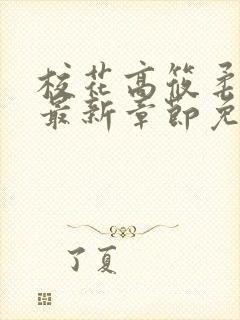 校花高筱柔
最新章节免
了夏